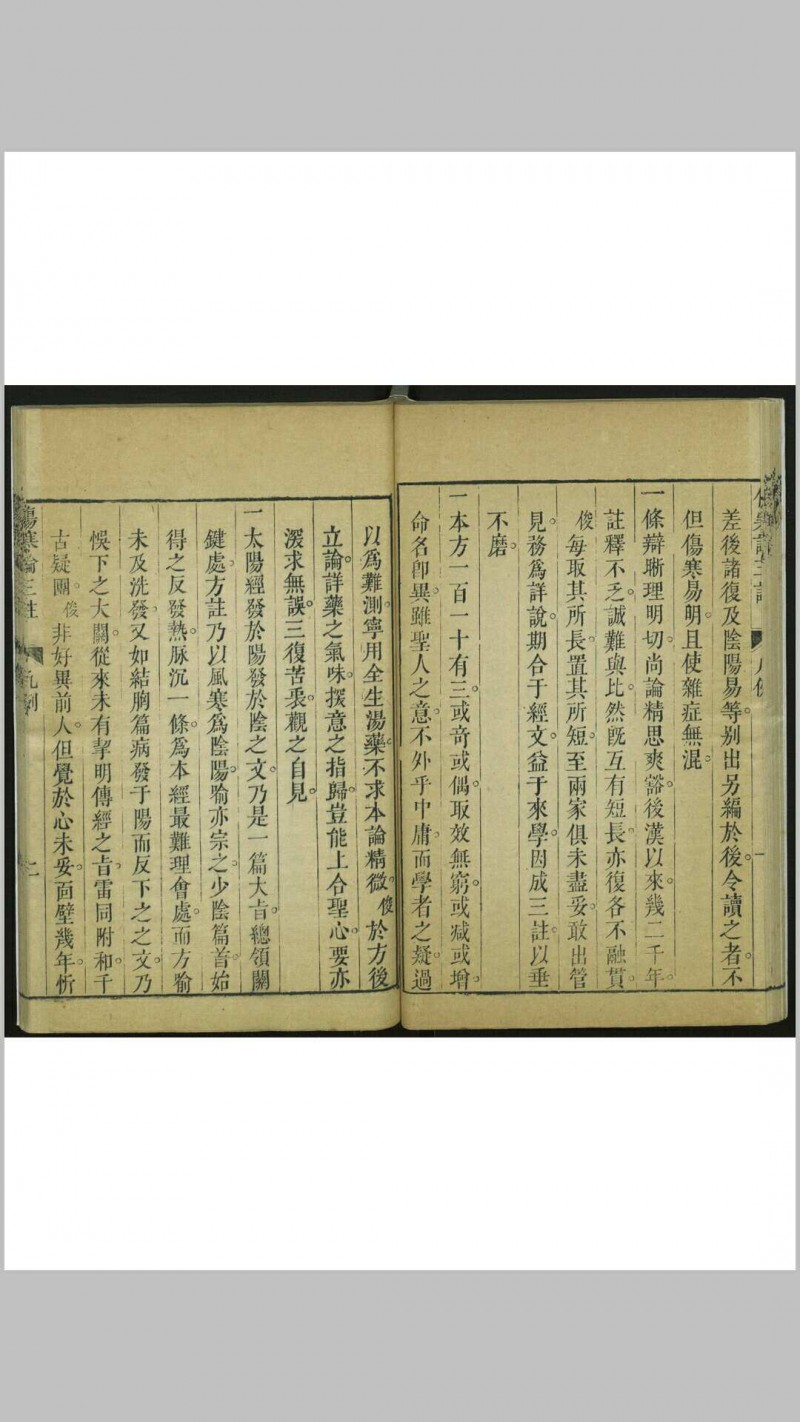 差後諸復及陰陽易等别出另編於後令讀之者不
但傷寒易明且使雜症無混
一條辯晣理明切尚論精思爽豁後漢以來幾二千年
註釋不乏誠難與比然旣互有短長亦復各不融貫
俊每取其所長置其所短至兩家俱未盡妥敢出管
見務爲詳說期合于經文益于來學因成三註以垂
不磨
一本方一百一十有三或奇或偶取效無窮或減或增
命名卽異雖聖人之意不外乎中庸而學者之疑過
以爲難測寧用全生湯藥不求本論精微俊於方後
立論詳藥之氣味揆意之指歸豈能上合聖心要亦
深求無誤三復苦衷觀之自見
一太陽經發於陽發於陰之文乃是一篇大旨總領關
鍵處方註乃以風寒爲陰陽喻亦宗之少陰篇首始
得之反發熱脉沉一條爲本經最難理會處而方喻
未及洗發又如結胸篇病發于陽而反下之之文乃
悞下之大關從來未有挈明傳經之旨雷同附和千
古疑團俊非好異前人但覺於心未妥面壁幾年忻
傷寒論三註 凡例